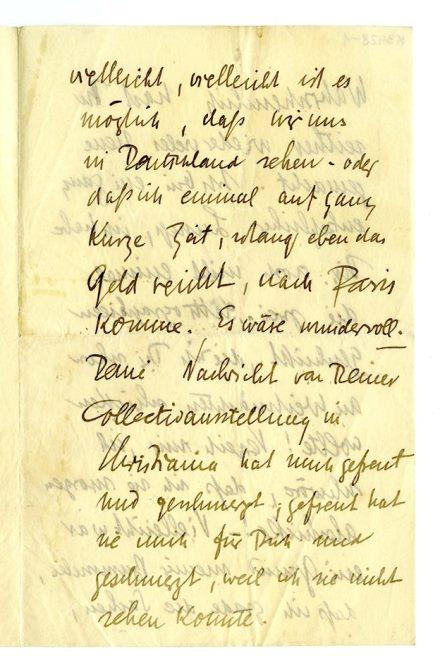 vielleicht, vielleicht ist es
möglich, daß wir uns
in Deutschland sehen - oder
daß ich einmal auf ganz
kurze Zeit, solang eben das
Geld reicht, nach Paris
komme. Es wäre wundervoll. –
Deine Nachricht von Deiner
Collectivausstellung in
Christiania hat mich gefreut
und geschmerzt, gefreut hat
sie mich für Dich und
geschmerzt, weil ich sie nicht
sehen konnte.